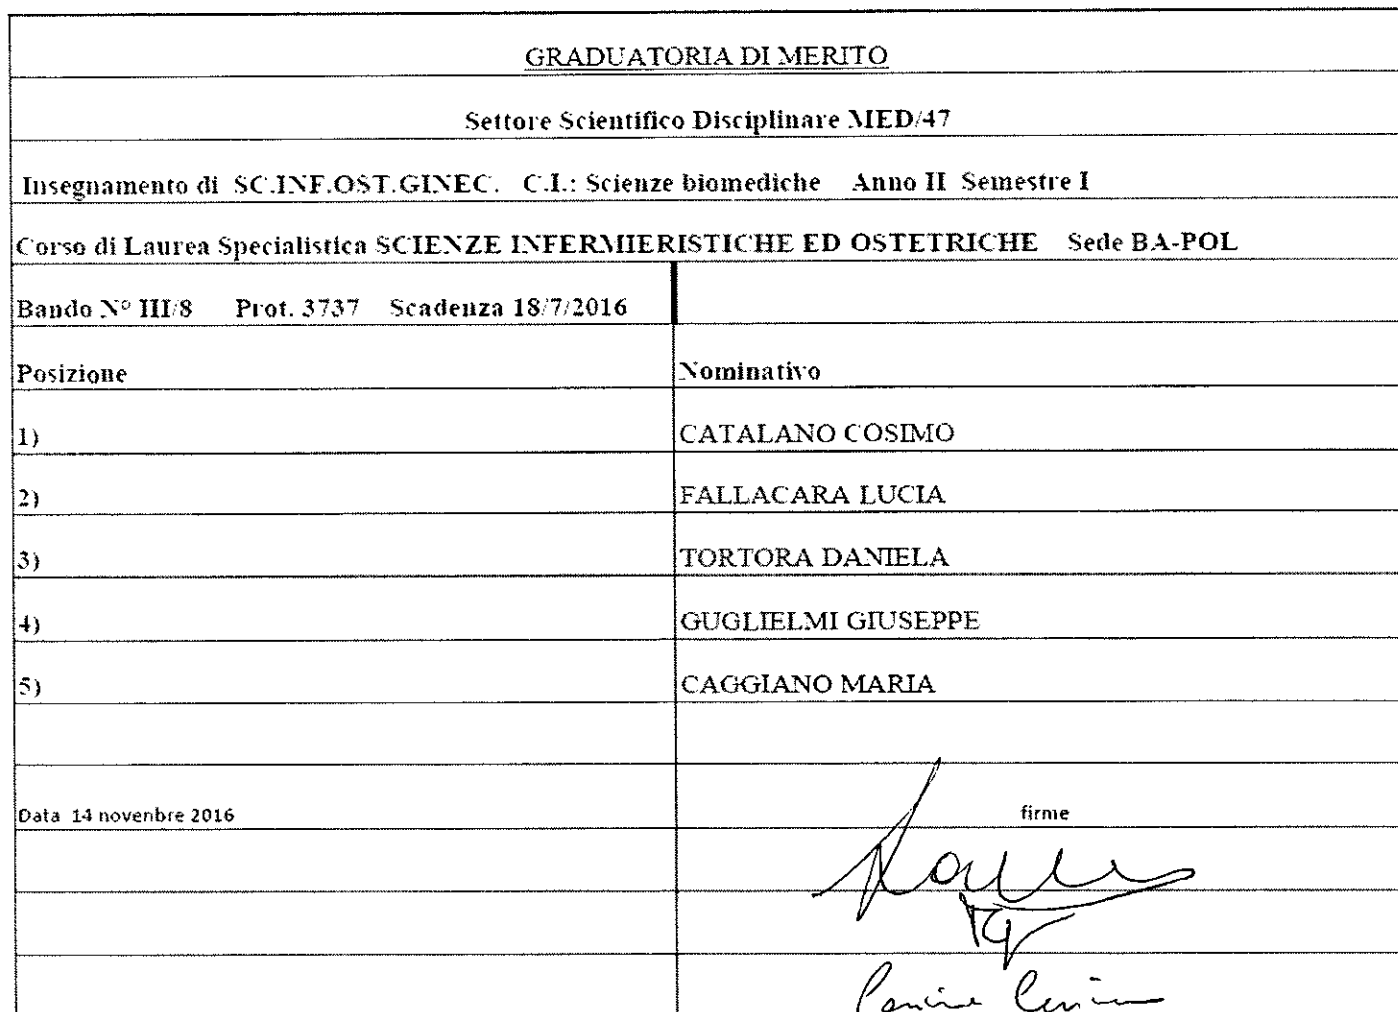 GRADUATORIA DI MERITO
Settore Scientifico Disciplinare MED/47
Insegnamento di SC.INF.OST.GINEC. C.I.: Scienze biomediche Anno II Semestre I
Corso di Laurea Specialistica SCIENZE INFERMIERISTICHE ED OSTETRICHE Sede BA-POL
Bando N° III/8 Prot. 3737 Scadenza 18/7/2016
Posizione Nominativo
1) CATALANO COSIMO
2) FALLACARA LUCIA
3) TORTORA DANIELA
4) GUGLIELMI GIUSEPPE
5) CAGGIANO MARIA
Data 14 novenbre 2016 firme